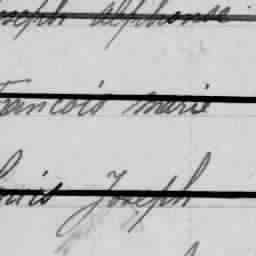 oseph alphonse
francois marie
ouis Joseph